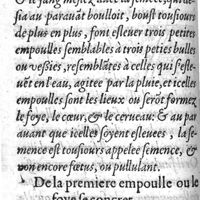 & le sang meslez auec la semence, qui de-
sia au parauãt boulloit, boust tousiours
de plus en plus, font esleuer trois petites
empoulles semblables à trois petites bulles
ou vessies, resemblãtes à celles qui s'esle-
uẽt en l'eau, agitee par la pluie, et icelles
empoulles sont les lieux ou serõt formez
le foye, le cœur, & le cerueau: & au par
auant que icelles soyent esleuees, la se-
mence est tousiours appelee semence, &
non encore fœtus, ou pullulant.
De la premiere empoulle ou le
foye se concret